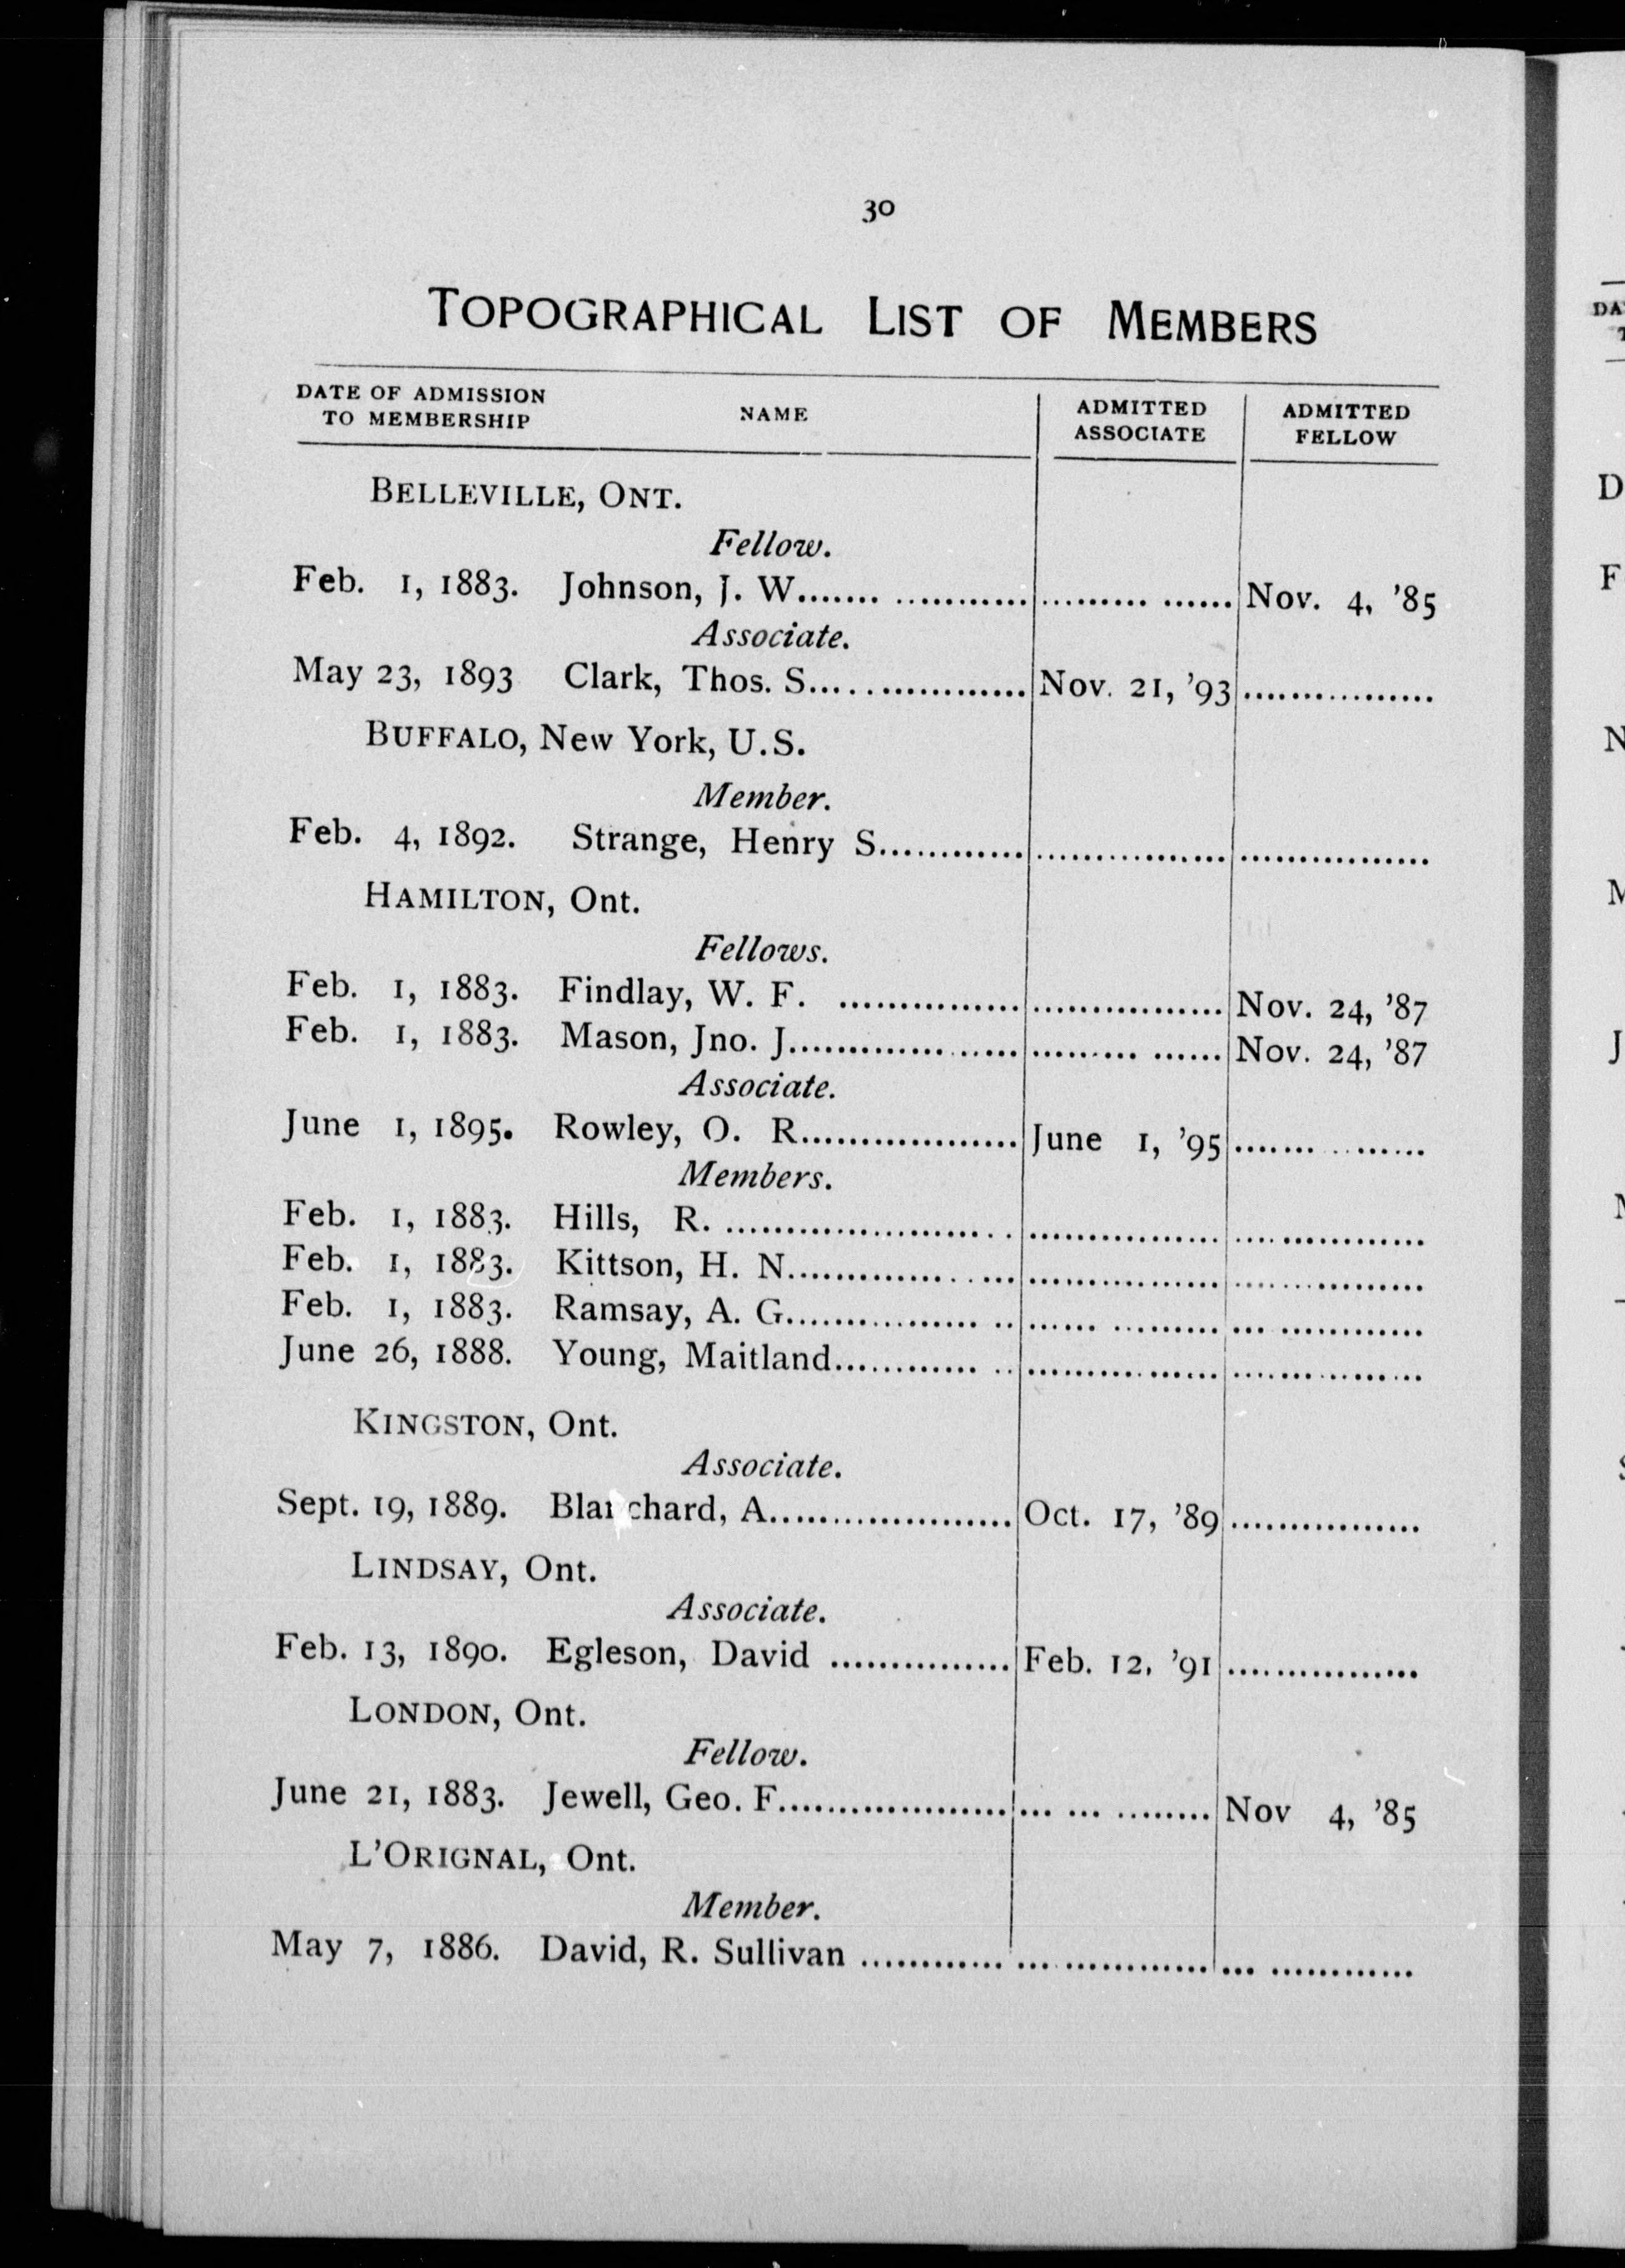 30
TOPOGRAPHICAL LIST OF MEMBERS
DATE OF ADMISSION TO MEMBERSHIP NAME ADMITTED ASSOCIATE ADMITTED FELLOW
BELLEVILLE, ONT.
Fellow.
Feb. 1, 1883. Johnson, J. W. Nov. 4, '85
Associate.
May 23, 1893 Clark, Thos. S. Nov. 21, '93
BUFFALO, New York, U.S.
Member.
Feb. 4, 1892. Strange, Henry S.
HAMILTON, Ont.
Fellows.
Feb. 1, 1883. Findlay, W. F. Nov. 24, '87
Feb. 1, 1883. Mason, Jno. J. Nov. 24, '87
Associate.
June 1, 1895. Rowley, O. R. June 1, '95
Members.
Feb. 1, 1883. Hills, R.
Feb. 1, 1883. Kittson, H. N.
Feb. 1, 1883. Ramsay, A. G.
June 26, 1888. Young, Maitland
KINGSTON, Ont.
Associate.
Sept. 19, 1889. Blanchard, A. Oct. 17, '89
LINDSAY, Ont.
Associate.
Feb. 13, 1890. Egleson, David Feb. 12, '91
LONDON, Ont.
Fellow.
June 21, 1883. Jewell, Geo. F. Nov 4, '85
L'ORIGNAL, Ont.
Member.
May 7, 1886. David, R. Sullivan